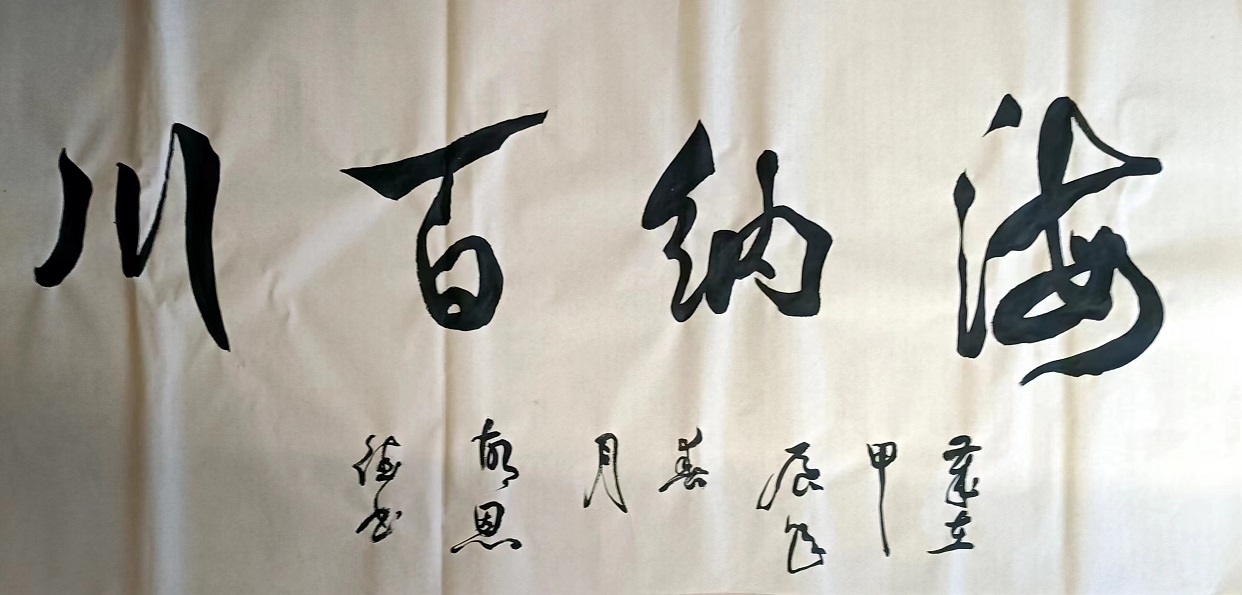 海纳百川
岁在甲辰年春月胡恩德书